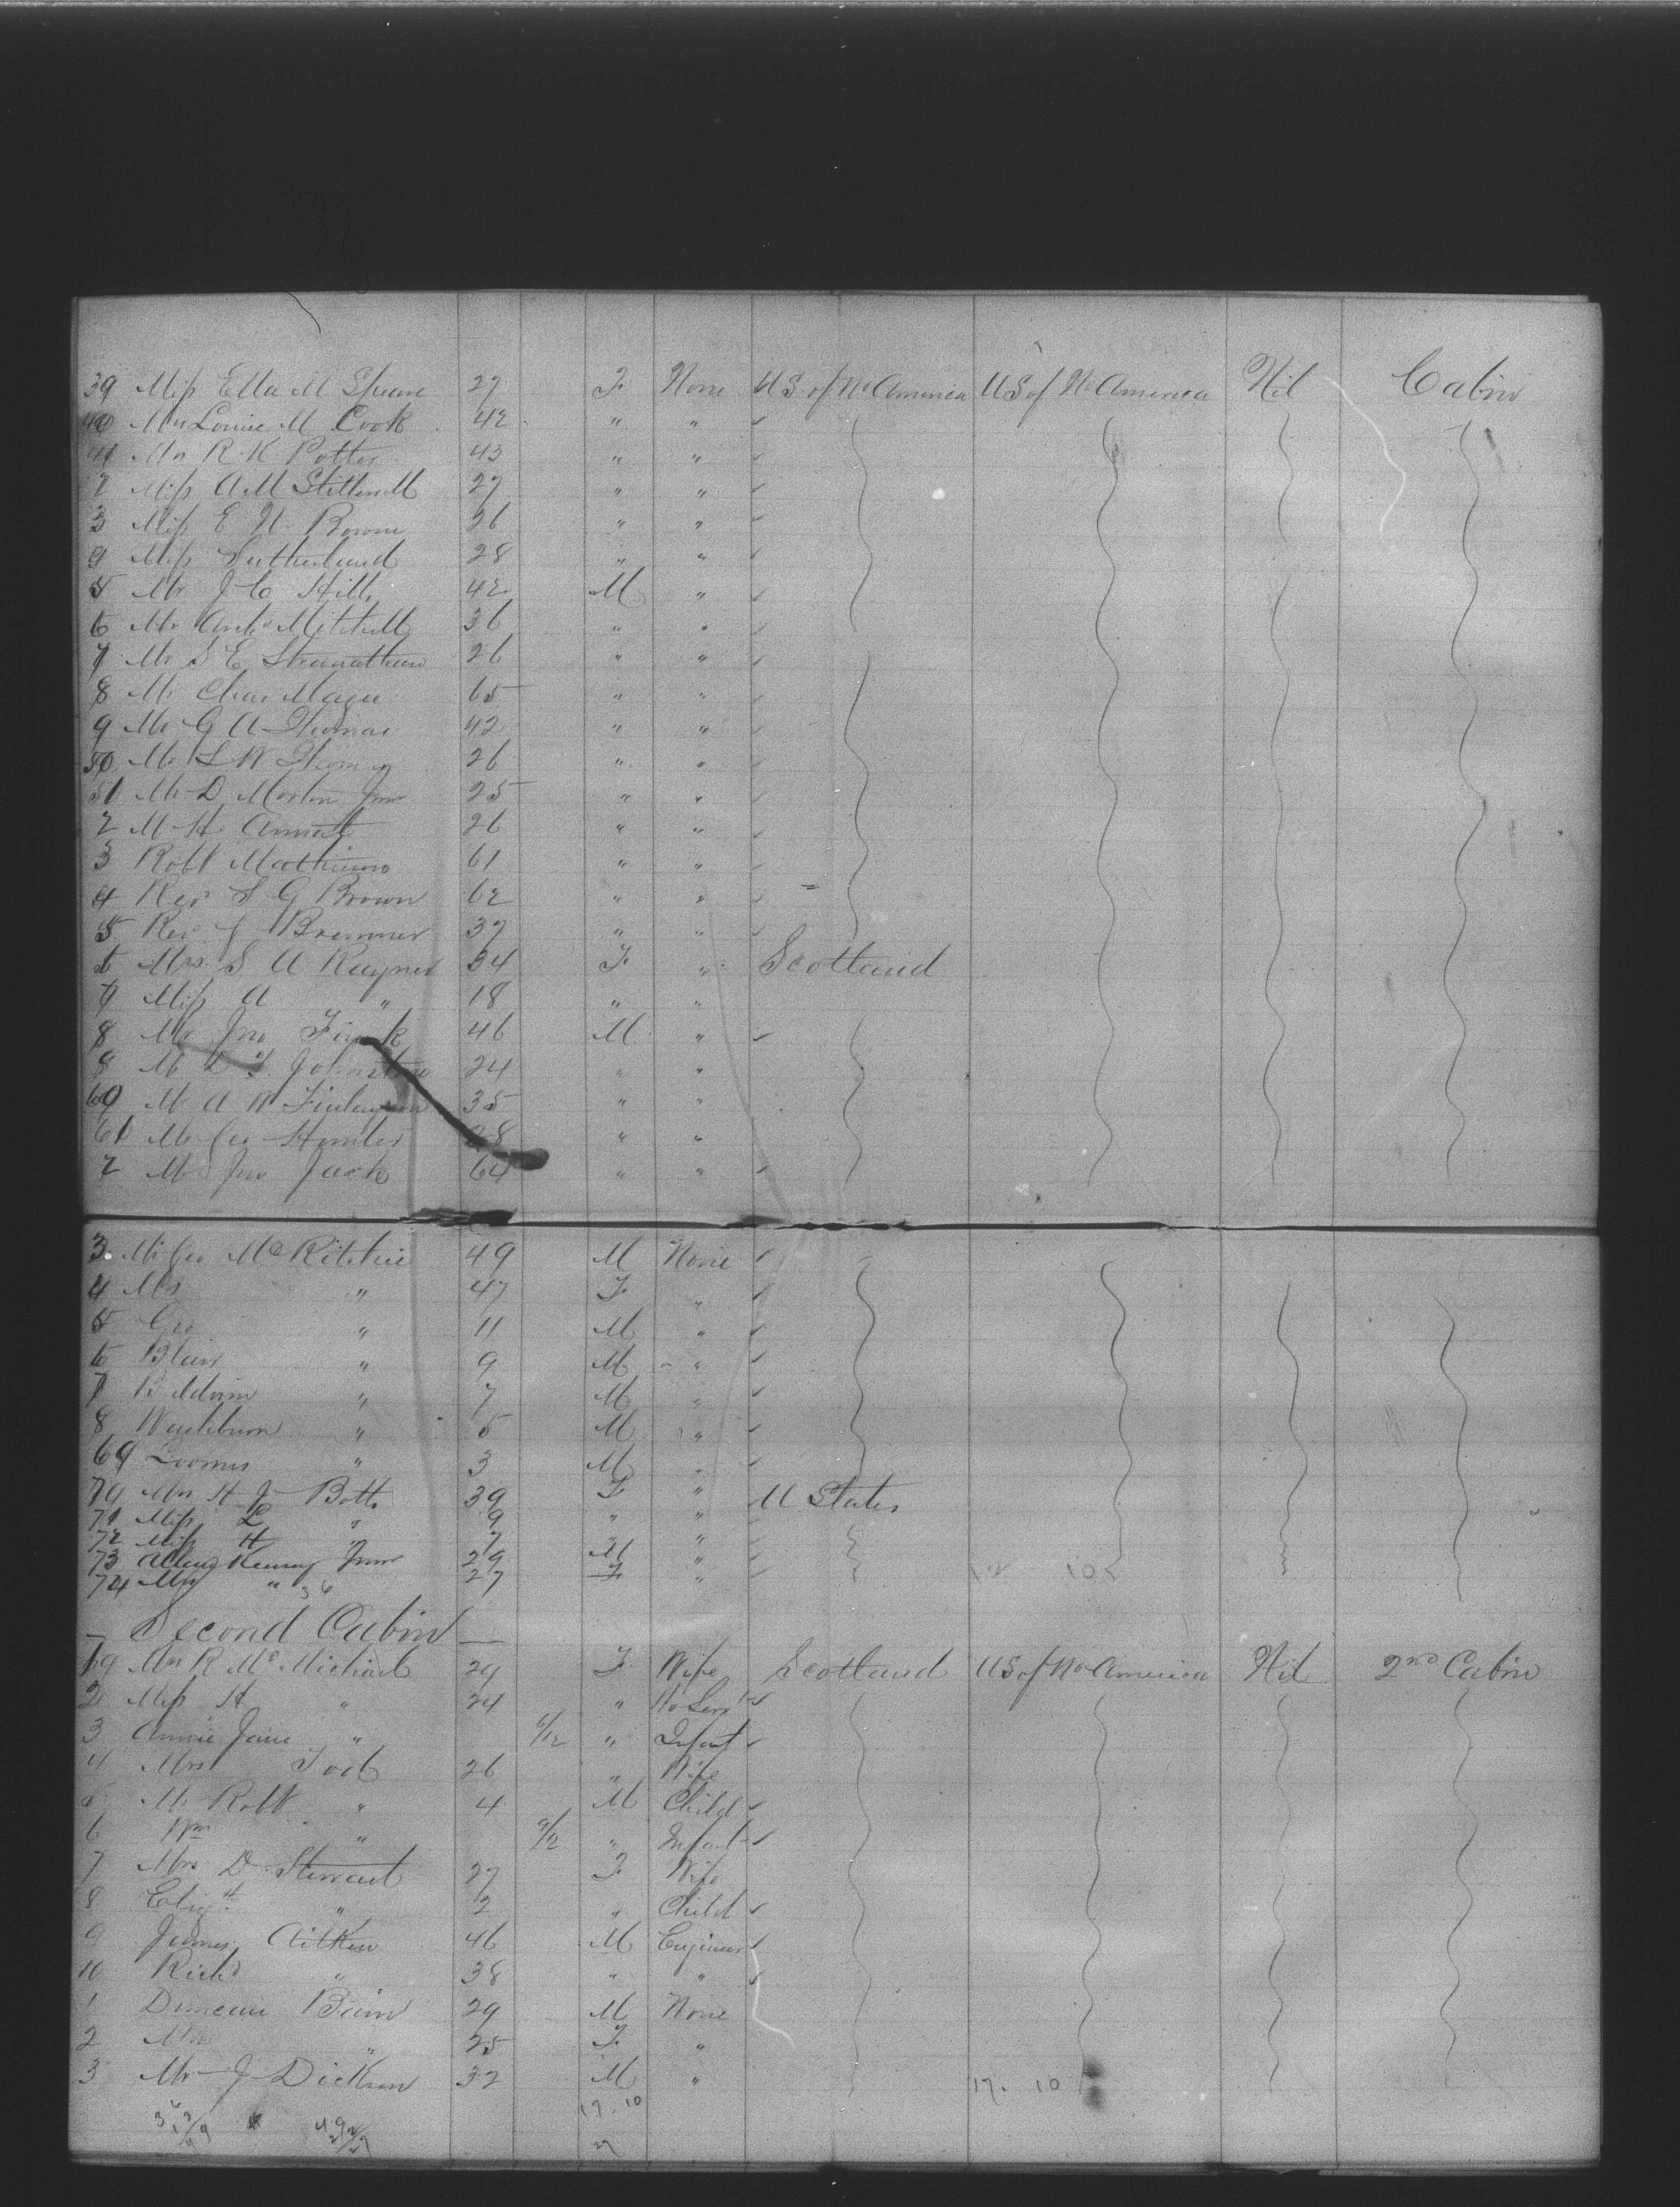 39 Miss Ella M Speare 27 F None U S of No America U S of No America Nil Cabin
40 Mrs Louise M Cook 42 " " ✓
41 Mrs R. K Potter 43 " " ✓
2 Miss A M 27 " " ✓
3 Miss E N Bowne 26 " " ✓
4 Miss Sutherland 28 " " ✓
5 Mr J C Hills 42 M " ✓
6 Mr Archd Mitchell 36 " " ✓
7 Mr S E 26 " " ✓
8 Mr Chas Magee 65 " " ✓
9 Mr G A Thomas 42 " " ✓
50 Mr L W 26 " " ✓
51 Mr D Morton Junr 25 " " ✓
2 M H. Annat 26 " " ✓
3 Robt 61 " " ✓
4 Revd S G Brown 62 " " ✓
5 Rev. J Bremner 37 " " ✓
6 Mrs. S A Rayner 34 F " Scotland
7 Miss A " 18 " "
8 Mr Jno 46 M " ✓
8 M Johnstone 24 " "
60 M A W Finlayson 35 " "
61 Mr Geo Hunter " "
2 Mr Jno Jack 64 " " ✓
3. Mr Geo McRitchie 49 M None ✓
4 Mrs " 47 F " ✓
5 Geo " 11 M " ✓
6 Blair " 9 M " ✓
7 " 7 M " ✓
8 Washburn " 5 M " ✓
69 Loomis " 3 M " ✓
70 Mrs H J Botts 39 F " U States
71 Miss L " 9 " " ✓
72 Miss H " 7 " " ✓
73 Kenney Junr 29 M " ✓
74 Mrs " 36 27 F " ✓ 12 10
— Second Cabin —
Mrs R McMichael 29 F Wife Scotland U S of No America Nil 2nd Cabin
2 Miss H " 24 " Ho Servt ✓
3 Annie Jane " 6/12 " Infant ✓
4 Mrs Tod 26 " Wife
5 M Robt " 4 M Child ✓
6 Wm " 9/12 " Infant ✓
7 Mrs D. Stewart 27 F Wife
8 Elizth " 2 " Child ✓
9 James Aitken 46 M Engineer ✓
10 Richd " 38 " " ✓
1 Duncan Bain 29 M None
2 Mrs " 25 F "
3 Mr J Dickson 32 M " 17. 10
17. 10
27